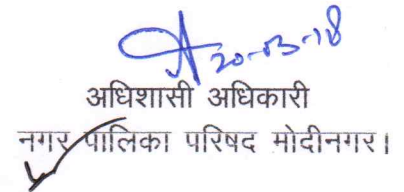 20-03-18
अधिशासी अधिकारी
नगर पालिका परिषद मोदीनगर।